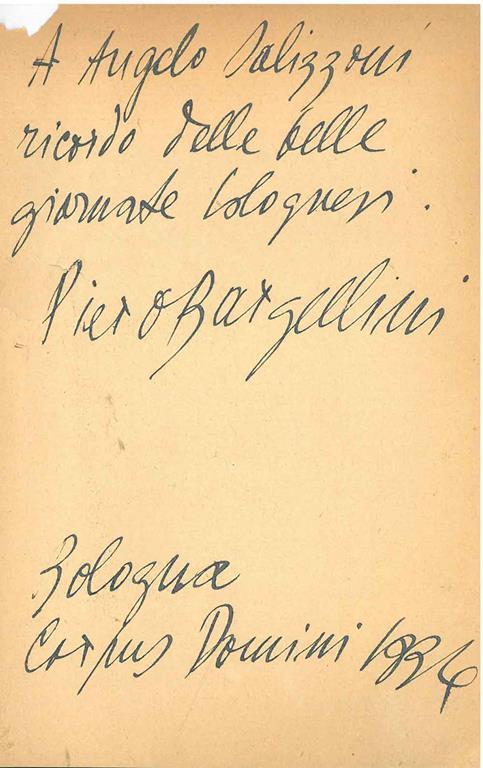 A Angelo Salizzoni
ricordo delle belle
giornate bolognesi.
Piero Bargellini
Bologna
Corpus Domini 1936